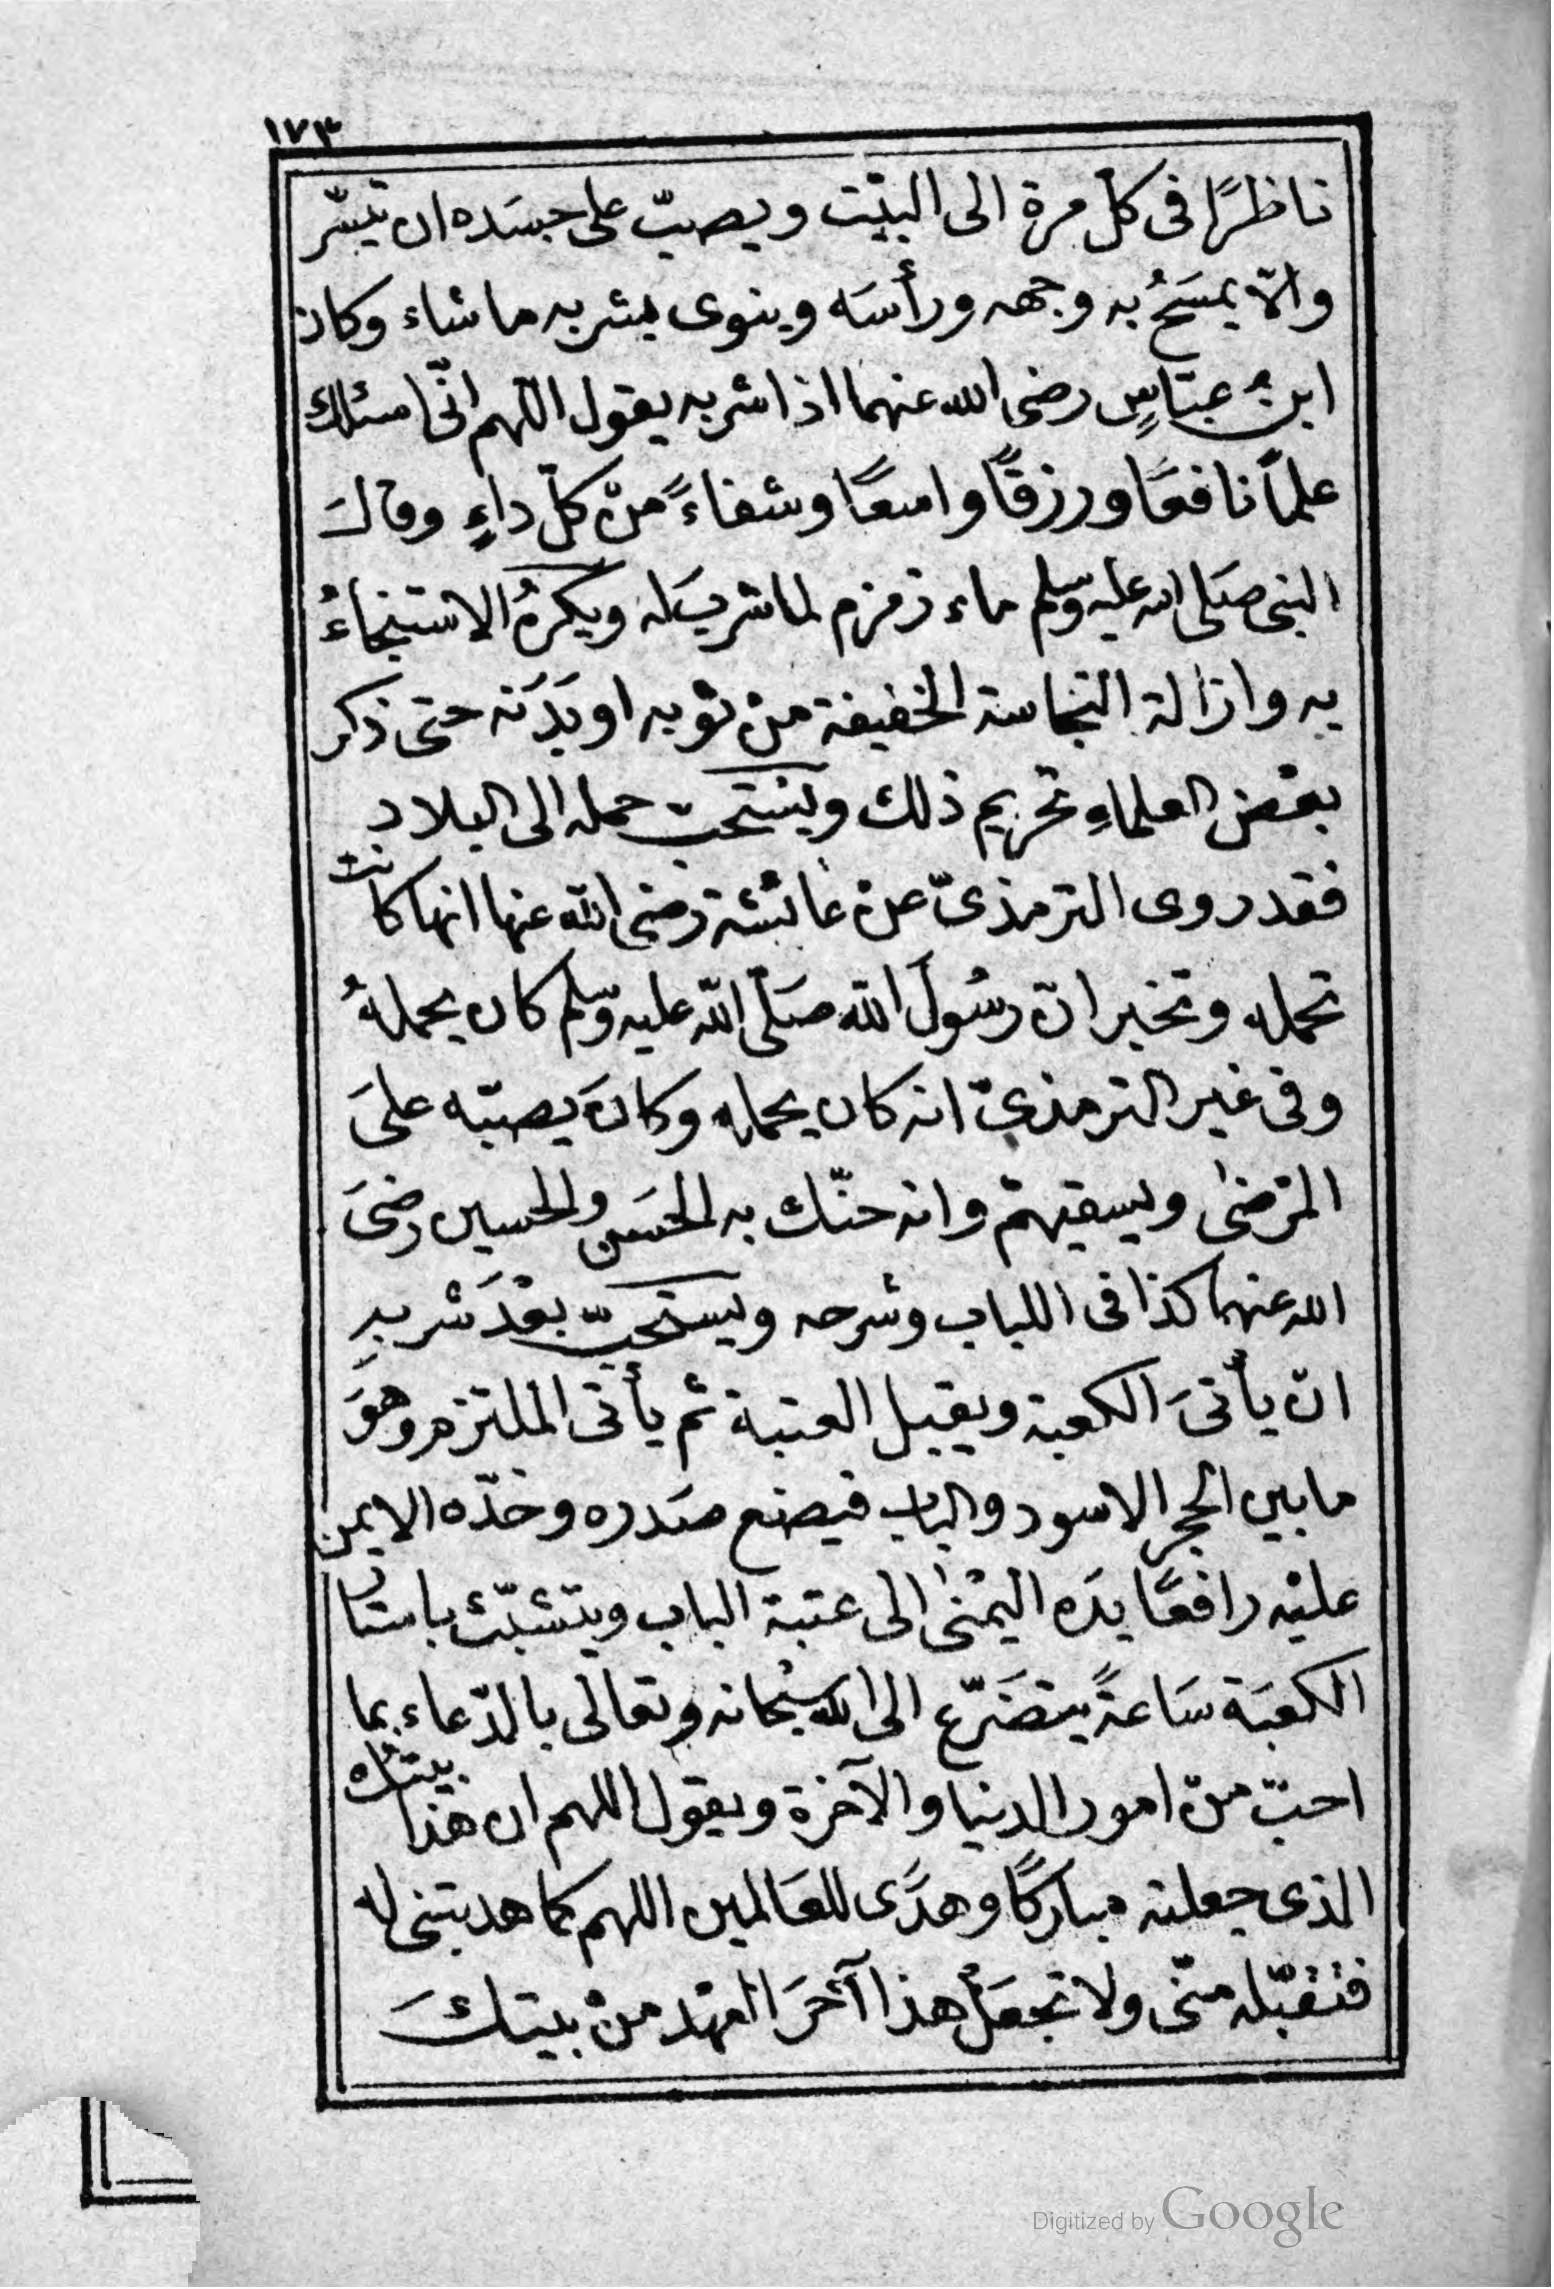 ١٧٣
ناظرًا فى كلّ مرة الى البيْت ويصبّ على جسَده ان تيسّر
والّا يمسَحُ به وجهه ورأسَه وينوى بشربه ماشاء وكان
ابنُ عبّاسٍ رضى الله عنهما اذا شربه يقول اللّهم انّى اسئلك
علمًا نافعًا ورزقًا واسعًا وشفاءً منْ كلّ داءٍ وقالَ
النبى صَلى الله عليه وسلم ماء زمزم لما شربَ له ويكرهُ الاستنجاءُ
به وازالة النجاسة الخفيفة منْ ثوبه او بَدَنه حتى ذكر
بعْض العلماءِ تحريم ذلك ويسْتحبّ حمله الى البلاد
فقد روى الترمذىّ عنْ عائشة رضى الله عنها انها كانت
تحمله وتخبر انّ رسُولَ الله صَلّى الله عليه وسّلم كان يحملهُ
وفى غير الترمذىّ انه كان يحمله وكانَ يصبّه علىَ
المرْضىٰ ويسقيهمْ وانه حنّك به الحَسَن والحسين رضىَ
الله عنهما كذا فى اللباب وشرحه ويستحبّ بعْدَ شربهِ
انْ يأتىَ الكعبة ويقبل العتبة ثم يأتى الملتزم وهوَ
مابين الحجر الاسود والباب فيضع صَدره وخدّه الايمن
عليْه رافعًا يدَه اليمْنىٰ الى عتبة الباب ويتشبّث باستار
الكعبَة سَاعةً يتضَرّع الى الله سبْحانه وتعالى بالدّعاء بما
احبّ منْ امور الدنيا والآخرة ويقول اللهم ان هذا بيتُك
الذى جعلته مباركًا وهدًى للعَالمين اللهم كما هديتنى له
فتقبّله منّى ولا تجعَلْ هذا آخرَ العهْد منْ بيتكَ
Digitized by Google